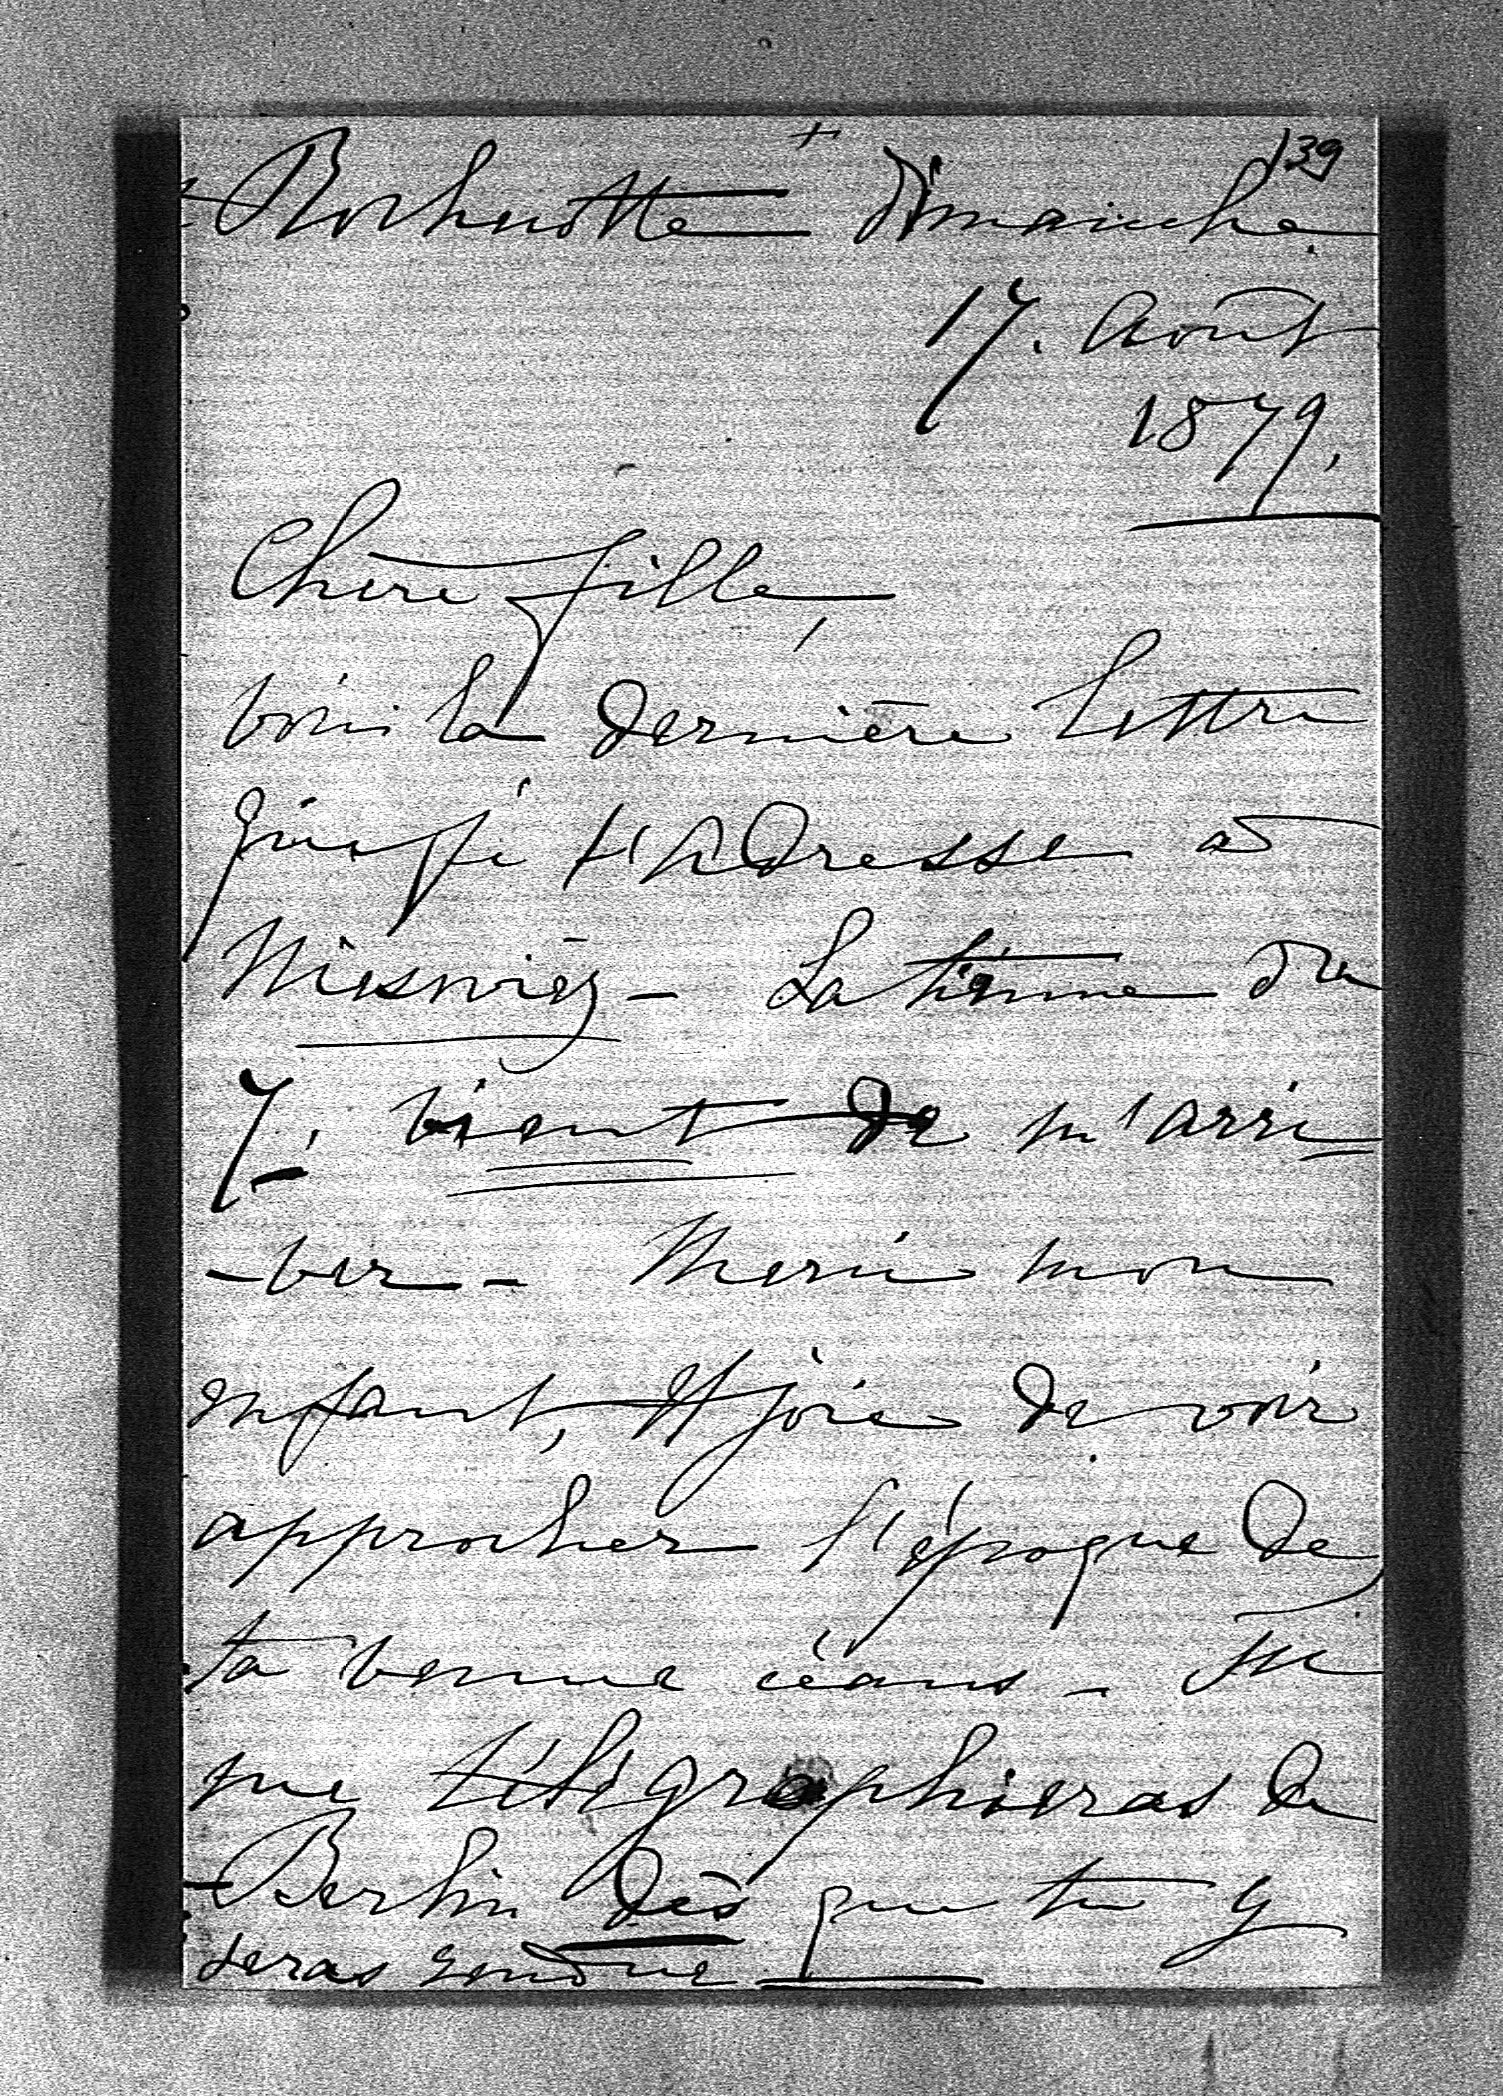 139
Rochecotte Dimanche.
17. Août
1879.
Chère fille,
voici la dernière lettre
que je t'adresse à
Nieswiez - La tienne du
7. vient de m'arri
-ver - Merci mon
enfant, et joie de voir
approcher l'époque de
ta venue céans - Tu
me télégraphieras de
Berlin dès que tu y
seras rendue